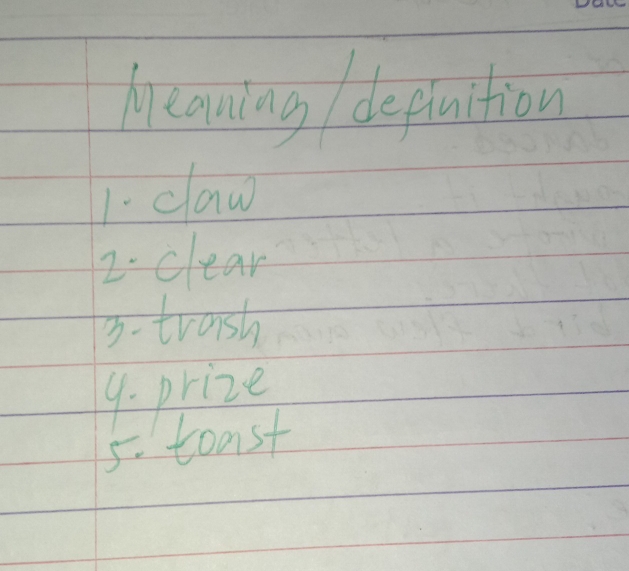 Date
Meaning/definition
1. claw
2. clear
3. trash
4. prize
5. toast